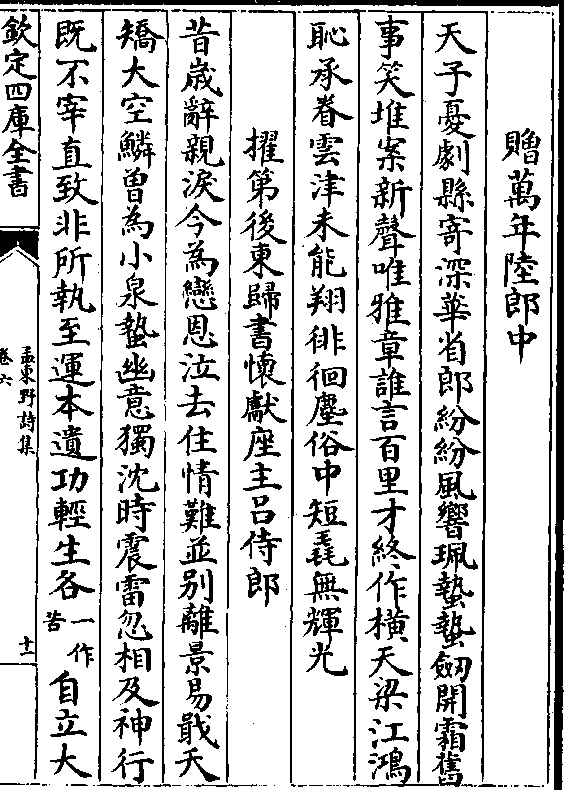 贈萬年陸郎中
天子憂劇縣寄深華省郎紛紛風響珮蟄蟄劒開霜舊
事笑堆案新聲唯雅章誰言百里才終作橫天梁江鴻
恥承眷雲津未能翔徘徊塵俗中短毳無輝光
擢第後東歸書懷獻座主呂侍郎
昔歲辭親淚今為戀恩泣去住情難並别離景易戢天
矯大空鱗曾為小泉蟄幽意獨沈時震雷忽相及神行
既不宰直致非所執至運本遺功輕生各一作苦自立大
欽定四庫全書
孟東野詩集
卷六
十一